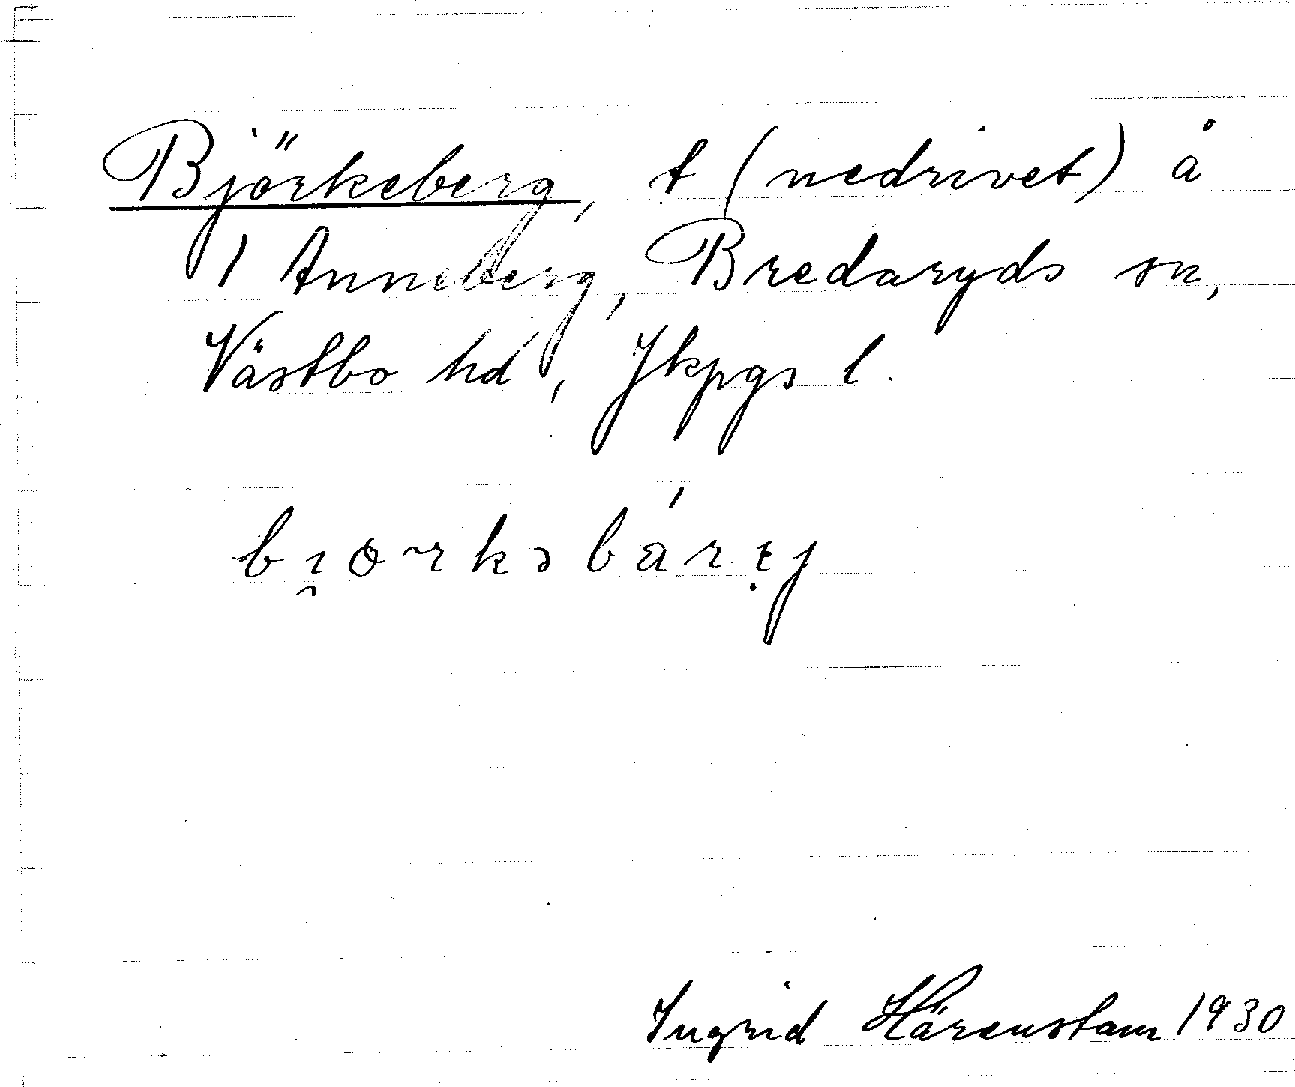 Björkeberg, t (nedrivet) å
1 Anneberg, Bredaryds sn,
Västbo hd, Jkpgs l.
Ingrid Härenstam 1930